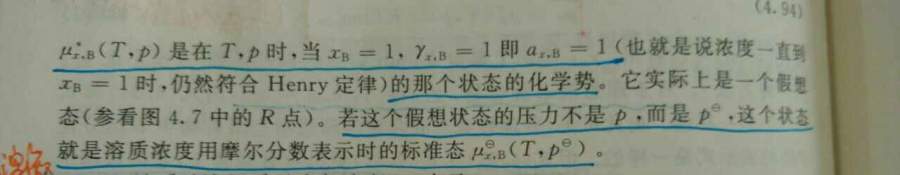 (4.94)
μ*x,B(T,p) 是在 T,p 时,当 xB = 1, γx,B = 1 即 ax,B = 1(也就是说浓度一直到
xB = 1 时,仍然符合 Henry 定律)的那个状态的化学势。它实际上是一个假想
态(参看图 4.7 中的 R 点)。若这个假想状态的压力不是 p,而是 p⊖,这个状态
就是溶质浓度用摩尔分数表示时的标准态 μ⊖x,B(T,p⊖)。